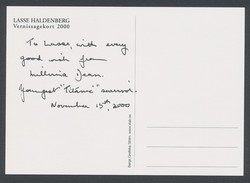 LASSE HALDENBERG
Vernissagekort 2000
To Lasse, with every
good wish from
Millvina Dean.
Youngest "Titanic" survivor.
November 15th, 2000